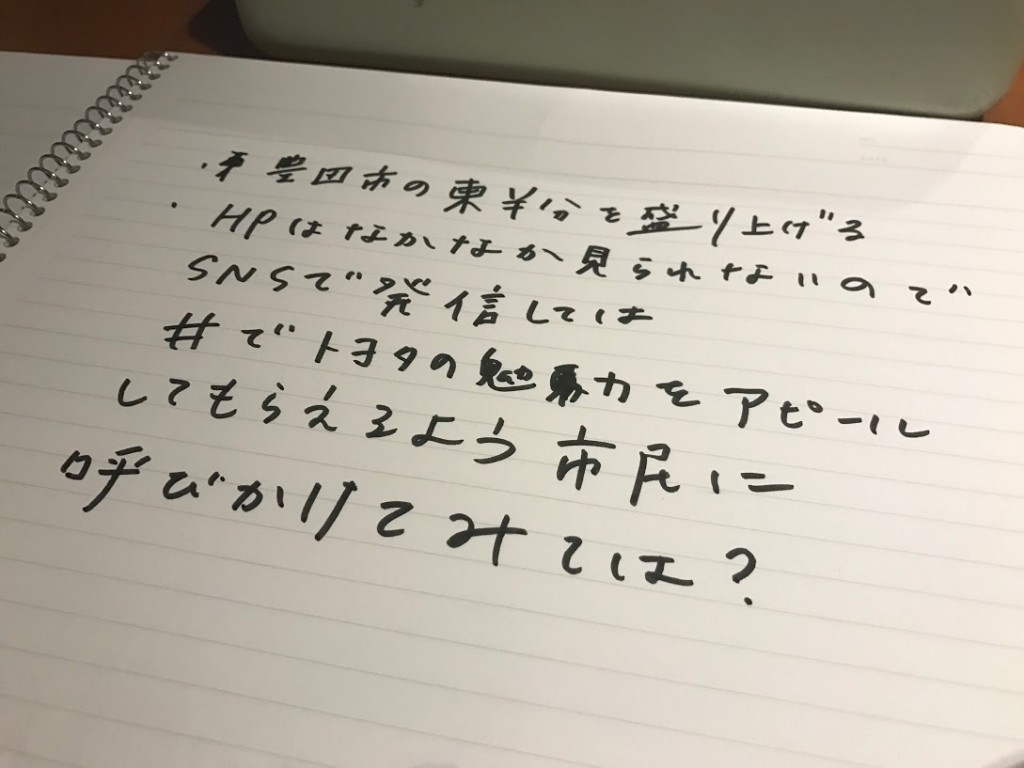 ・豊田市の東半分を盛り上げる
・HPはなかなか見られないので
SNSで発信しては
#でトヨタの魅力をアピール
してもらえるよう市民に
呼びかけてみては?